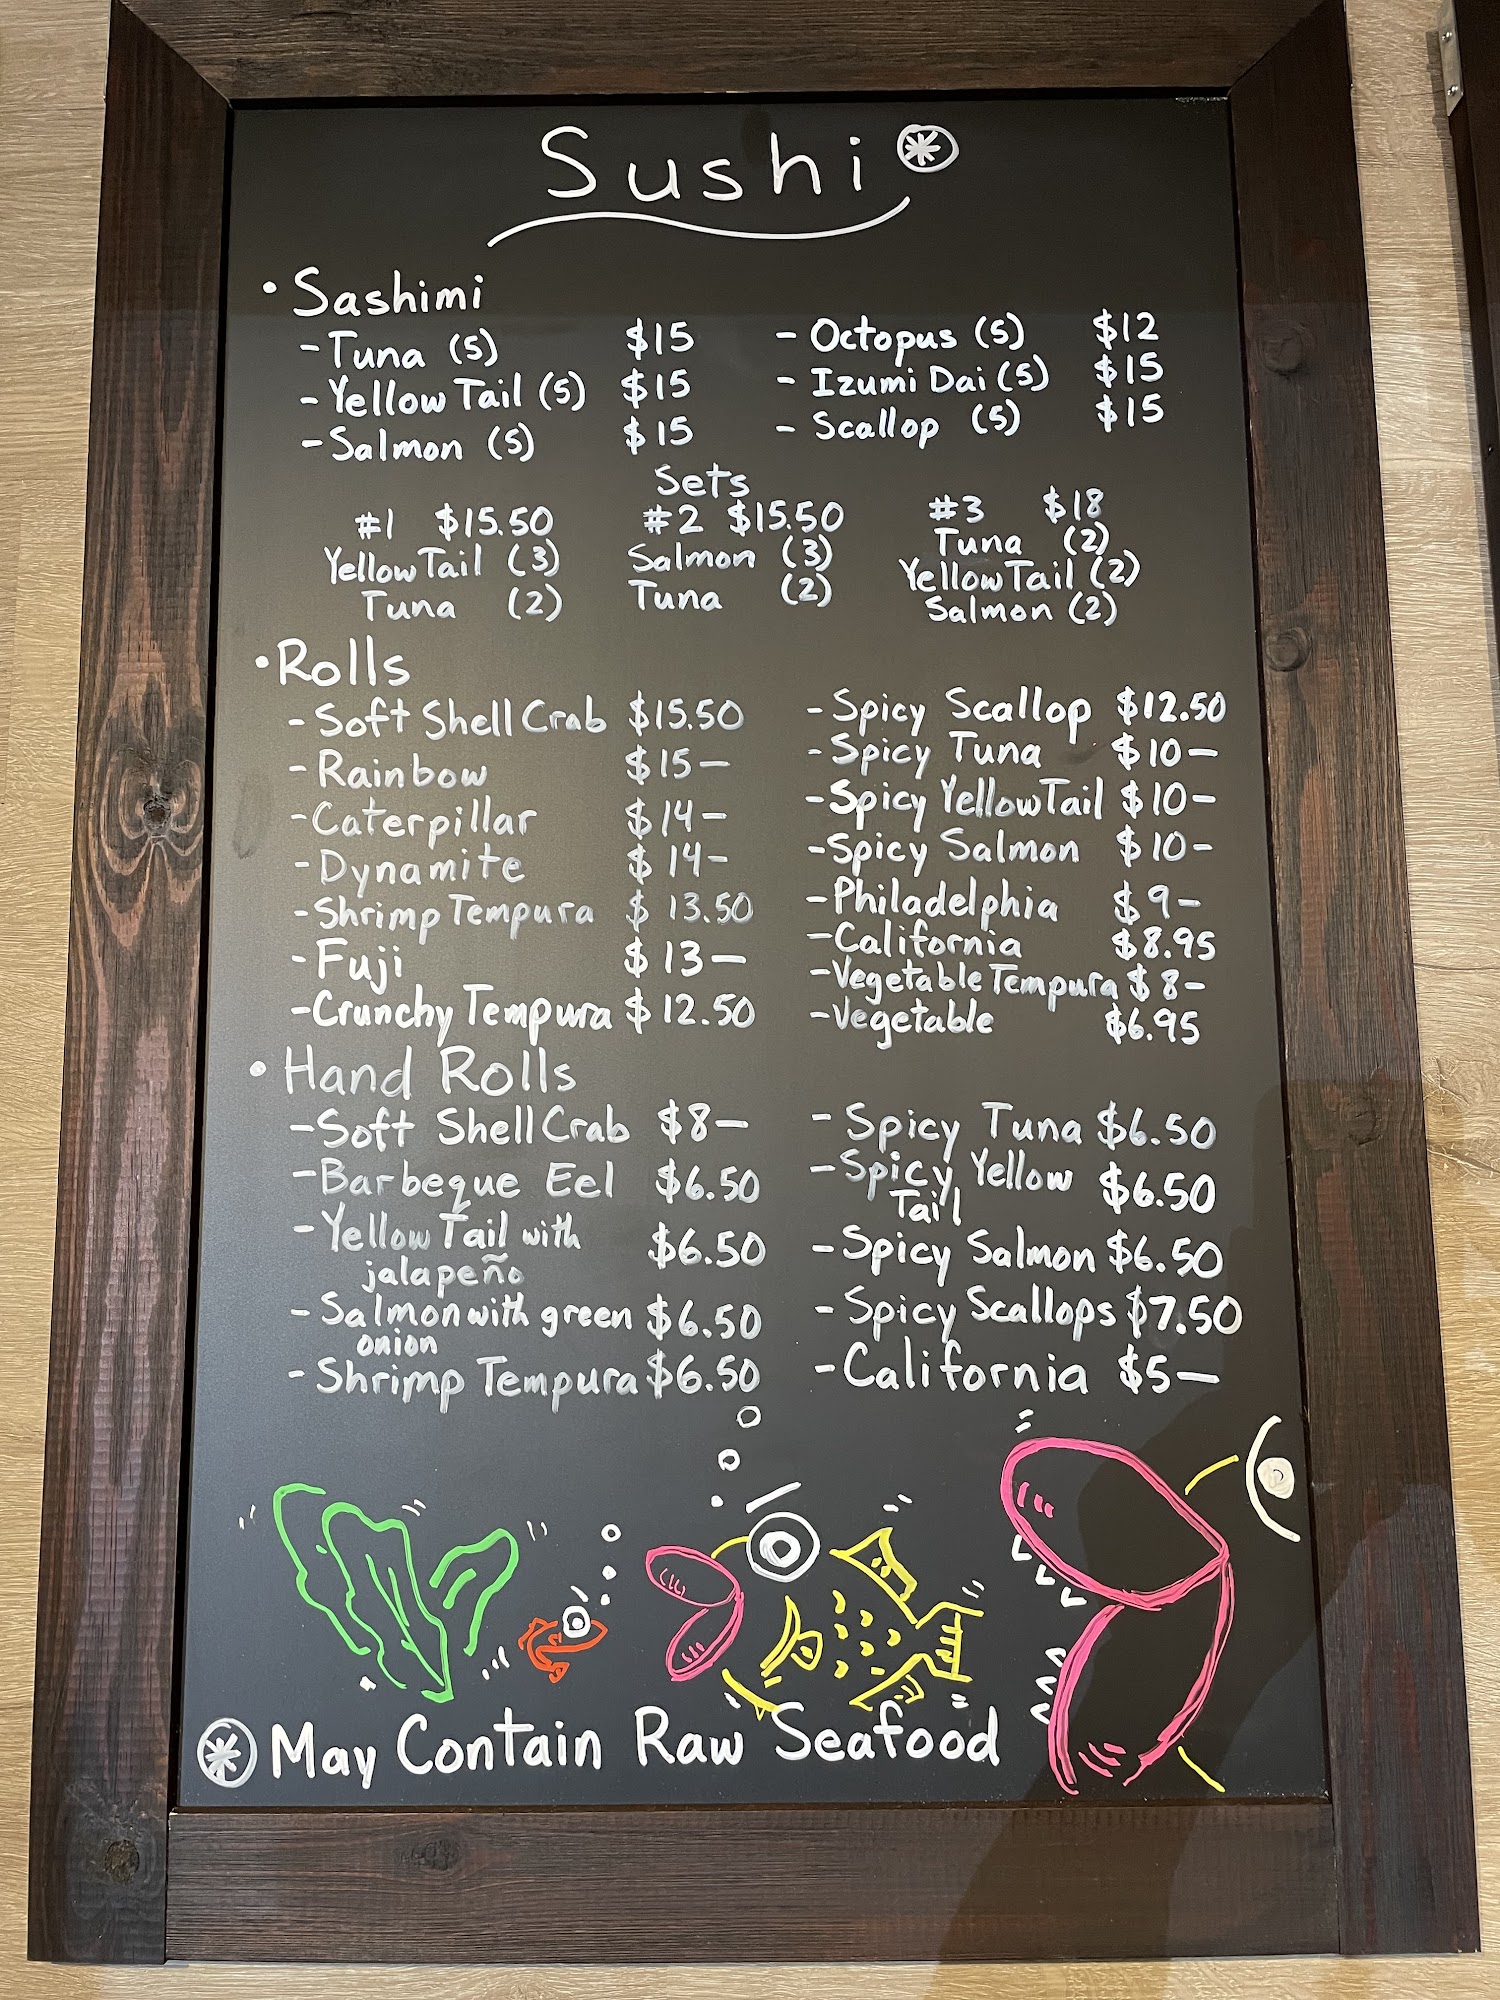 Sushi *
• Sashimi
- Tuna (5) $15
- Yellow Tail (5) $15
- Salmon (5) $15
- Octopus (5) $12
- Izumi Dai (5) $15
- Scallop (5) $15
Sets
#1 $15.50
Yellow Tail (3)
Tuna (2)
#2 $15.50
Salmon (3)
Tuna (2)
#3 $18
Tuna (2)
Yellow Tail (2)
Salmon (2)
• Rolls
- Soft Shell Crab $15.50
- Rainbow $15—
- Caterpillar $14—
- Dynamite $14—
- Shrimp Tempura $13.50
- Fuji $13—
- Crunchy Tempura $12.50
- Spicy Scallop $12.50
- Spicy Tuna $10—
- Spicy Yellow Tail $10—
- Spicy Salmon $10—
- Philadelphia $9—
- California $8.95
- Vegetable Tempura $8—
- Vegetable $6.95
• Hand Rolls
- Soft Shell Crab $8—
- Barbeque Eel $6.50
- Yellow Tail with $6.50
jalapeño
- Salmon with green $6.50
onion
- Shrimp Tempura $6.50
- Spicy Tuna $6.50
- Spicy Yellow $6.50
Tail
- Spicy Salmon $6.50
- Spicy Scallops $7.50
- California $5—
* May Contain Raw Seafood